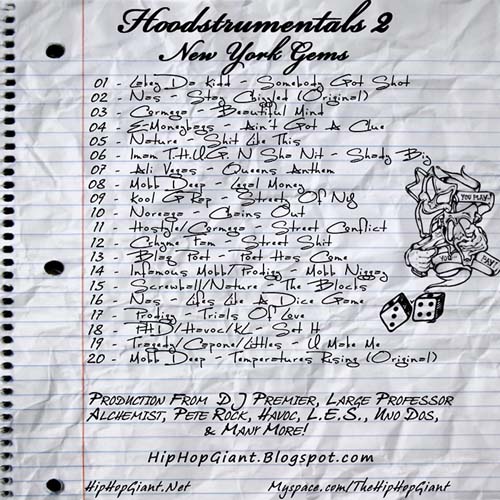 Hoodstrumentals 2
New York Gems
01 - Lakey Da Kidd - Somebody Got Shot
02 - Nas - Stay Chizeled (Original)
03 - Cormega - Beautiful Mind
04 - E-Moneybags - Ain't Got A Clue
05 - Nature - Shit Like This
06 - Imam T.H.U.G. N Sha Nit - Shady Biz
07 - Ali Vegas - Queens Anthem
08 - Mobb Deep - Legal Money
09 - Kool G Rap - Streetz Of NY
10 - Noreaga - Chains Out
11 - Hostyle/Cormega - Street Conflict
12 - Fam - Street Shit
13 - Blaq Poet - Poet Has Come
14 - Infamous Mobb/Prodigy - Mobb Niggaz
15 - Screwball/Nature - The Blocks
16 - Nas - Lifes Like A Dice Game
17 - Prodigy - Trials Of Love
18 - PHD/Havoc/KL - Set It
19 - Tragedy/Capone/Littles - U Make Me
20 - Mobb Deep - Temperatures Rising (Original)
YOU PLAY
YOU PAY
Production From DJ Premier, Large Professor
Alchemist, Pete Rock, Havoc, L.E.S., Uno Dos,
& Many More!
HipHopGiant.Blogspot.com
HipHopGiant.Net Myspace.com/TheHipHopGiant